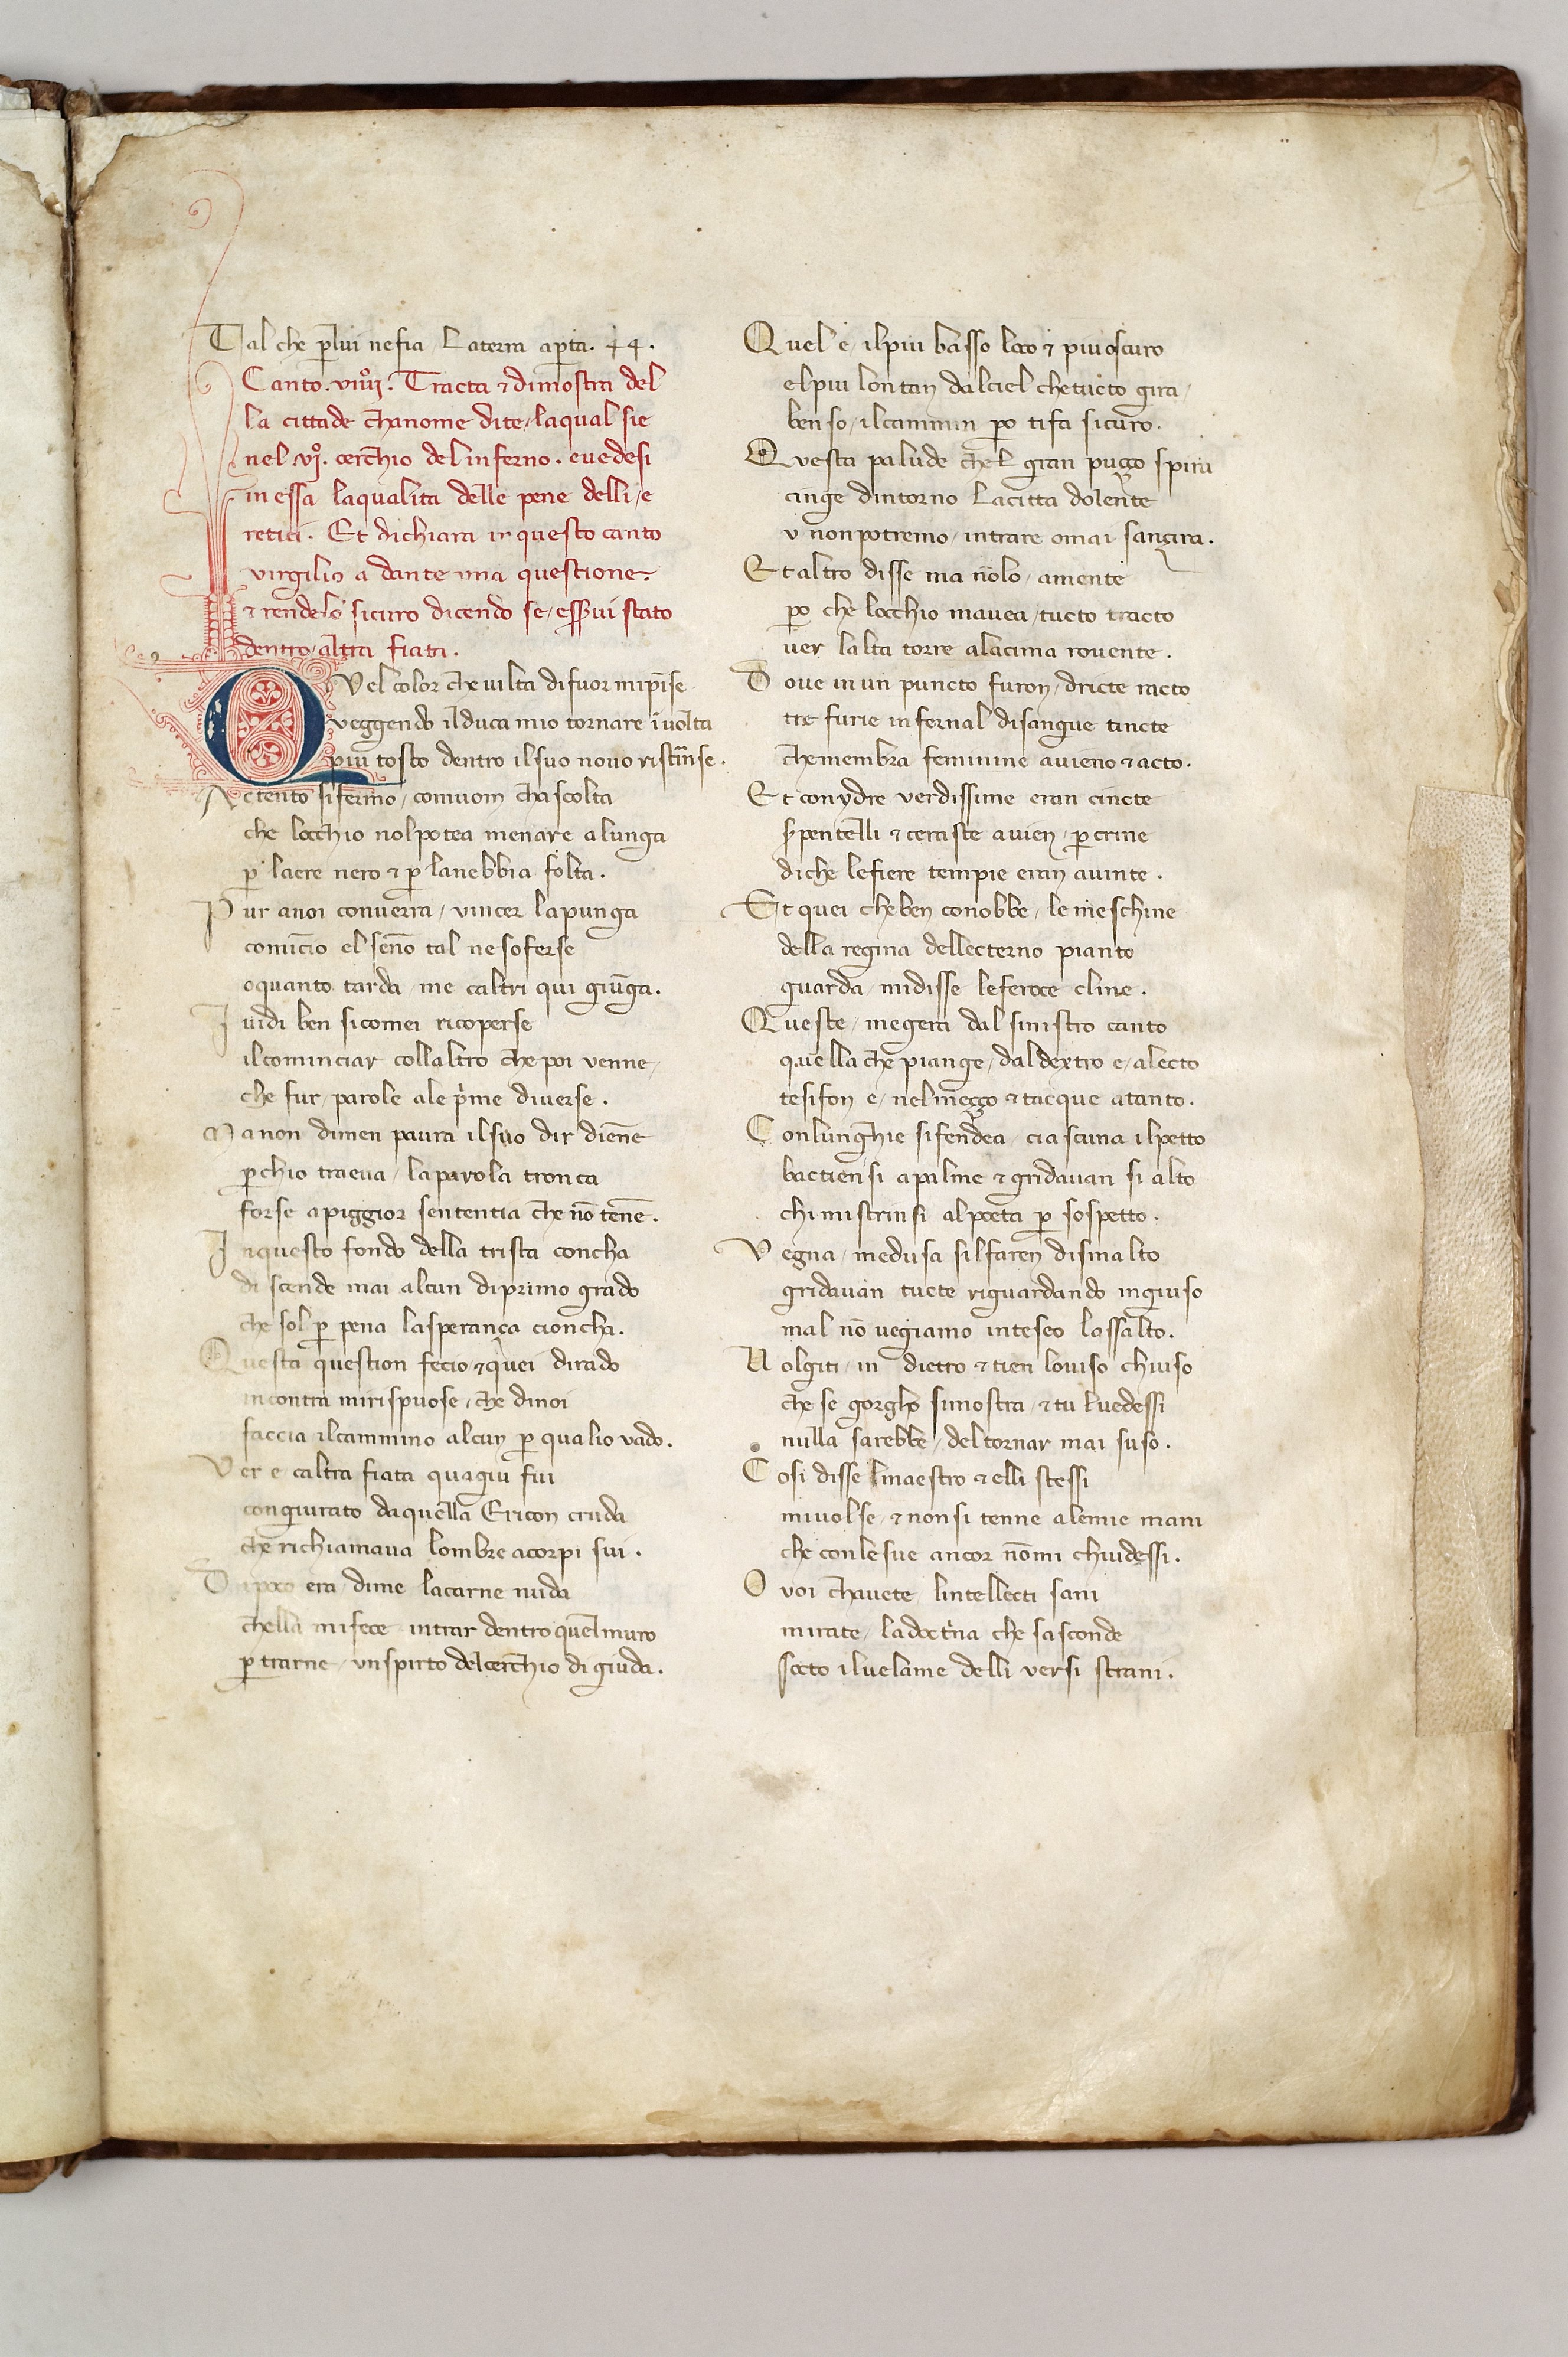 Tal che p̲ lui nefia Laterra ap̲ta. 44.
Canto. viiijº. Tracta ⁊ dimostra del
la cittade chanome dite/ laqual sie
nel .vjº. cerchio delinferno. euedesi
in essa laqualita delle pene delli/e
retici. Et dichiara in questo canto
virgilio a dante una questione
⁊ rendelo sicuro dicendo se/ esserui stato
dentro/altra fiata.
QVel color che uilta difuor mipīse
veggendo ilduca mio tornare īuolta
piu tosto dentro ilsuo nouo ristrinse.
Actento sifermo/ comuom chascolta
che locchio nolpotea menare alunga
p̲ laere nero ⁊ p̲ lanebbia folta.
Pur anoi conuerra/ vincer lapunga
comīcio el senno tal nesoferse
oquanto tarda/ me caltri qui giūga.
I uidi ben sicomei ricoperse
ilcominciar collaltro che poi venne/
che fur/ parole ale prime diuerse.
Ma non dimen paura ilsuo dir dienne
p̲chio traeua/ laparola tronca
forse apiggior sententia che nō tēne.
Inquesto fondo della trista concha
discende mai alcun diprimo grado
che sol p̲ pena lasperança cioncha.
Questa question fecio ⁊quei dirado
incontra mirispuose/ che dinoi
faccia ilcammino alcun p̲ qualio vado.
Ver e caltra fiata quagiu fui
congiurato daquella Ericon cruda
che richiamaua lombre acorpi sui.
Dipoco era/ dime lacarne nuda
chella mifece intrar dentro quelmuro
p̲ trarne/ unspirto delcerchio di giuda.
Quel e/ ilpiu basso loco ⁊ piuoscuro
elpiu lontan dalciel chetucto gira/
ben so/ ilcammin po tifa sicuro.
Questa palude chel gran puço spira
cinge dintorno Lacitta dolente
v nonpotremo/ intrare omai sançira.
Et altro disse ma nolo/ amente
po che locchio mauea/ tucto tracto
uer lalta torre alacima rouente.
Doue inun puncto furon/ dricte racto
tre furie infernal disangue tincte
chemembra feminine auieno ⁊ acto.
Et conydre verdissime eran cincte
s̲pentelli ⁊ ceraste auien/ p̲ crine
diche lefiere tempie eran auinte.
Et quei cheben conobbe/ le meschine
della regina delletterno pianto
guarda/ midisse leferoce erine.
Queste/ megera dal sinistro canto
quella che piange/ daldextro e/ alecto
tesifon e/ nelmeço ⁊ tacque atanto.
Conlunghie sifendea/ ciascuna ilpetto
bactiensi apalme ⁊ gridauan si alto
chimistrinsi alpoeta p̲ sospetto.
Vegna/ medusa silfaren dismalto
gridauan tucte riguardando ingiuso
mal nō vegiamo inteseo lassalto.
Uolgiti/ in dietro ⁊ tien louiso chiuso
che se gorgho simostra/ ⁊ tu luedessi
nulla sarebbe/ deltornar mai suso.
Cosi disse lmaestro ⁊ elli stessi
miuolse/ ⁊ nonsi tenne alemie mani
che conlesue ancor nōmi chiudessi.
O voi chauete lintellecti sani
mirate/ ladoctrina che sasconde
socto iluelame delli versi strani.